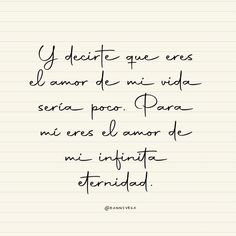 Y decirte que eres
el amor de mi vida
sería poco. Para
mí eres el amor de
mi infinita
eternidad.
@DANNIVESA